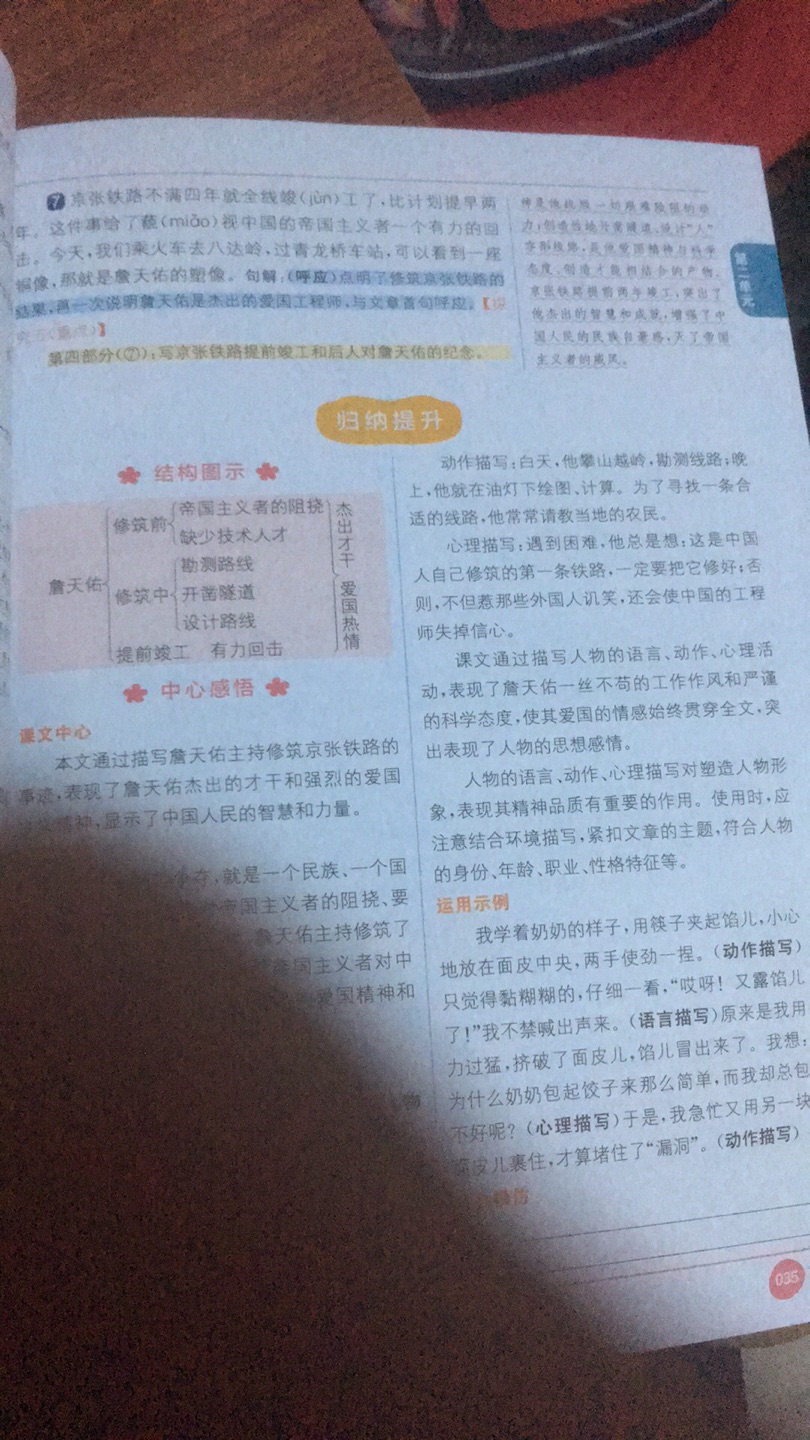 ⑦京张铁路不满四年就全线竣(jùn)工了,比计划提早两
年。这件事给了藐(miǎo)视中国的帝国主义者一个有力的回
击。今天,我们乘火车去八达岭,过青龙桥车站,可以看到一座
铜像,那就是詹天佑的塑像。句解:(呼应)点明了修筑京张铁路的
结果,再一次说明詹天佑是杰出的爱国工程师,与文章首句呼应。
第四部分(⑦):写京张铁路提前竣工和后人对詹天佑的纪念。
神是他战胜一切艰难险阻的动
力;创造性地开凿隧道、设计“人”
字形线路,是他爱国精神与科学
态度、创造才能相结合的产物。
京张铁路提前两年竣工,突出了
他杰出的智慧和成就,增强了中
国人民的民族自豪感,灭了帝国
主义者的威风。
第二单元
归纳提升
结构图示
詹天佑
修筑前
帝国主义者的阻挠
缺少技术人才
修筑中
勘测路线
开凿隧道
设计路线
提前竣工 有力回击
杰出才干
爱国热情
中心感悟
课文中心
本文通过描写詹天佑主持修筑京张铁路的
事迹,表现了詹天佑杰出的才干和强烈的爱国
精神,显示了中国人民的智慧和力量。
夺,就是一个民族、一个国
帝国主义者的阻挠、要
詹天佑主持修筑了
帝国主义者对中
爱国精神和
物
动作描写:白天,他攀山越岭,勘测线路;晚
上,他就在油灯下绘图、计算。为了寻找一条合
适的线路,他常常请教当地的农民。
心理描写:遇到困难,他总是想:这是中国
人自己修筑的第一条铁路,一定要把它修好;否
则,不但惹那些外国人讥笑,还会使中国的工程
师失掉信心。
课文通过描写人物的语言、动作、心理活
动,表现了詹天佑一丝不苟的工作作风和严谨
的科学态度,使其爱国的情感始终贯穿全文,突
出表现了人物的思想感情。
人物的语言、动作、心理描写对塑造人物形
象,表现其精神品质有重要的作用。使用时,应
注意结合环境描写,紧扣文章的主题,符合人物
的身份、年龄、职业、性格特征等。
运用示例
我学着奶奶的样子,用筷子夹起馅儿,小心
地放在面皮中央,两手使劲一捏。(动作描写)
只觉得黏糊糊的,仔细一看,“哎呀!又露馅儿
了!”我不禁喊出声来。(语言描写)原来是我用
力过猛,挤破了面皮儿,馅儿冒出来了。我想:
为什么奶奶包起饺子来那么简单,而我却总包
不好呢?(心理描写)于是,我急忙又用另一块
面皮儿裹住,才算堵住了“漏洞”。(动作描写)
035